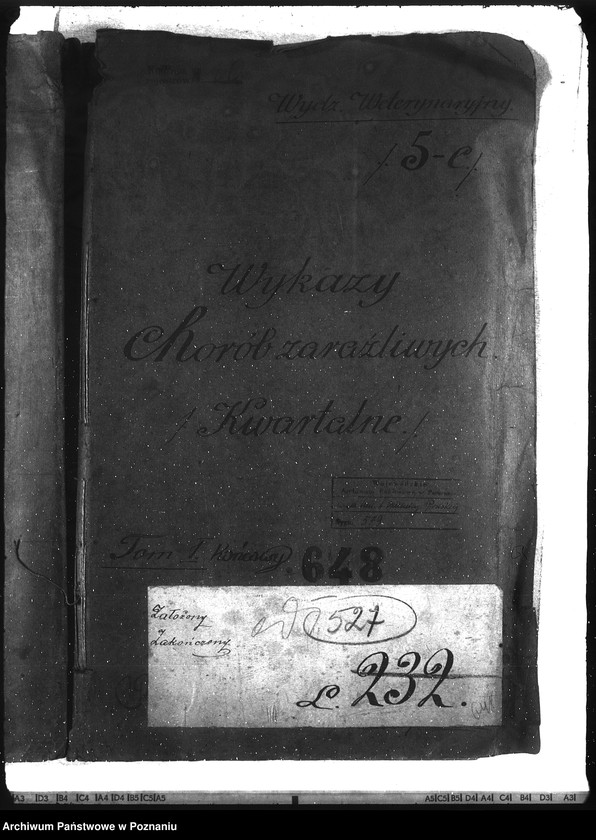 Wydz. Weterynaryjny.
/. 5-c/.
Wykazy
Chorób zaraźliwych.
/Kwartalne./
Tom I. końcowy
648
Założony
Zakończony
527
L. 232.
A3 D3 B4 C4 A4 D4 B5 C5 A5
A5 C5 B5 D4 A4 C4 B4 D3 A3
Archiwum Państwowe w Poznaniu